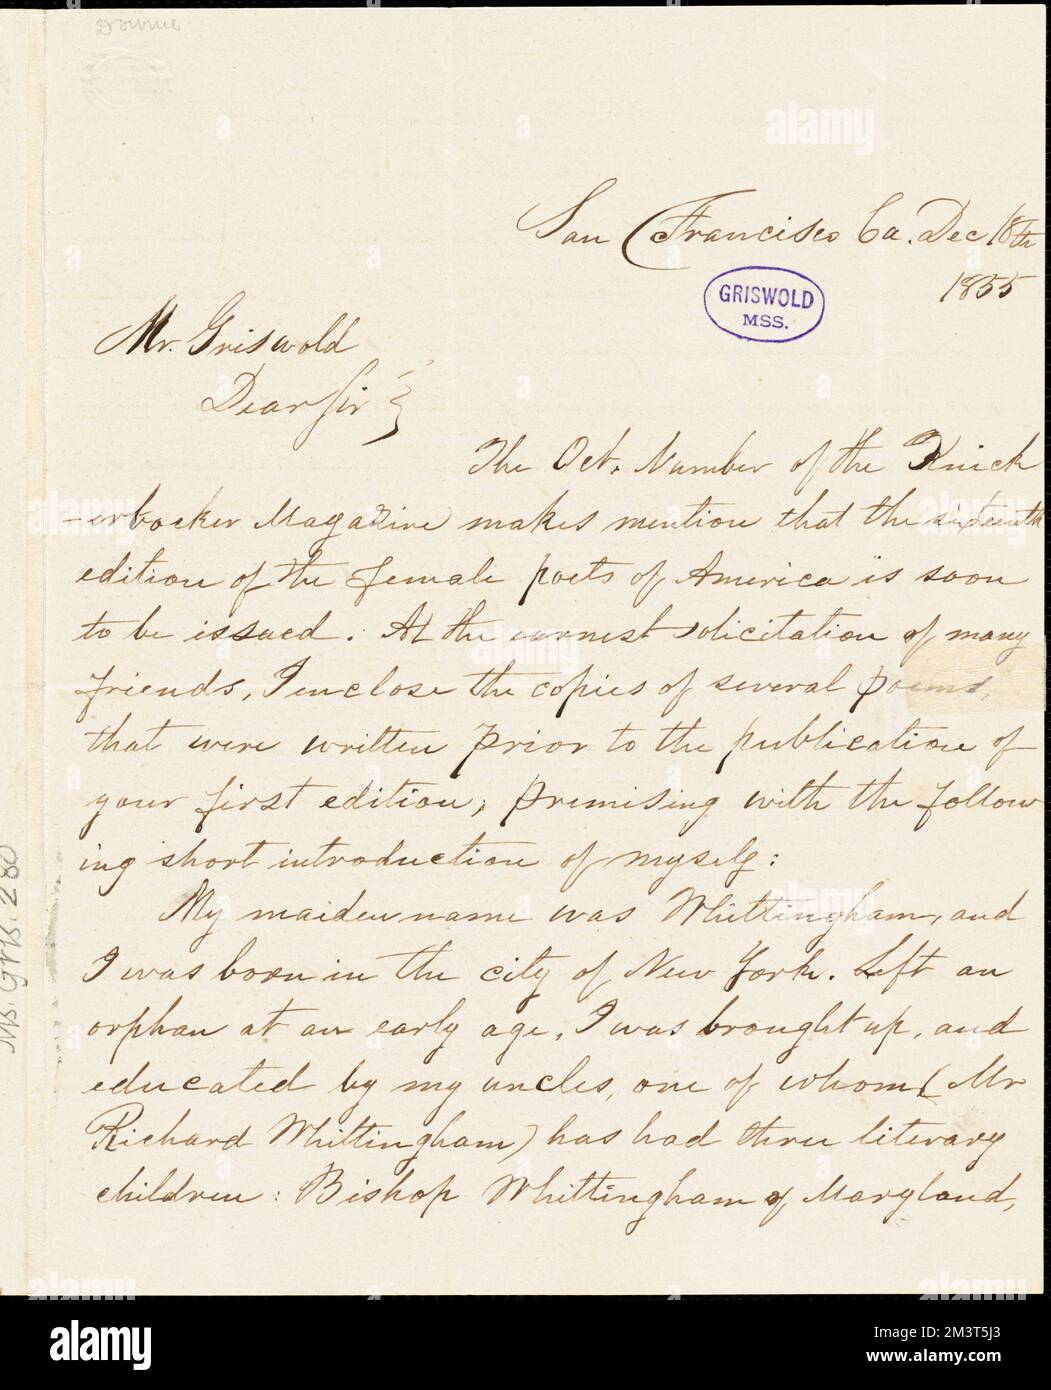 San Francisco Ca. Dec 18th
1855
GRISWOLD
MSS.
Mr. Griswold
Dear Sir
The Oct. Number of the Knick
-erbocker Magazine makes mention that the sixteenth
edition of the female poets of America is soon
to be issued. At the earnest solicitation of many
friends, I enclose the copies of several poems,
that were written prior to the publication of
your first edition, premising with the follow
ing short introduction of myself:
My maiden name was Whittingham, and
I was born in the city of New York. Left an
orphan at an early age, I was brought up, and
educated by my uncles, one of whom (Mr
Richard Whittingham) has had three literary
children: Bishop Whittingham of Maryland,
Ms. Gris. 280
alamy
Image ID: 2M3T5J3
www.alamy.com